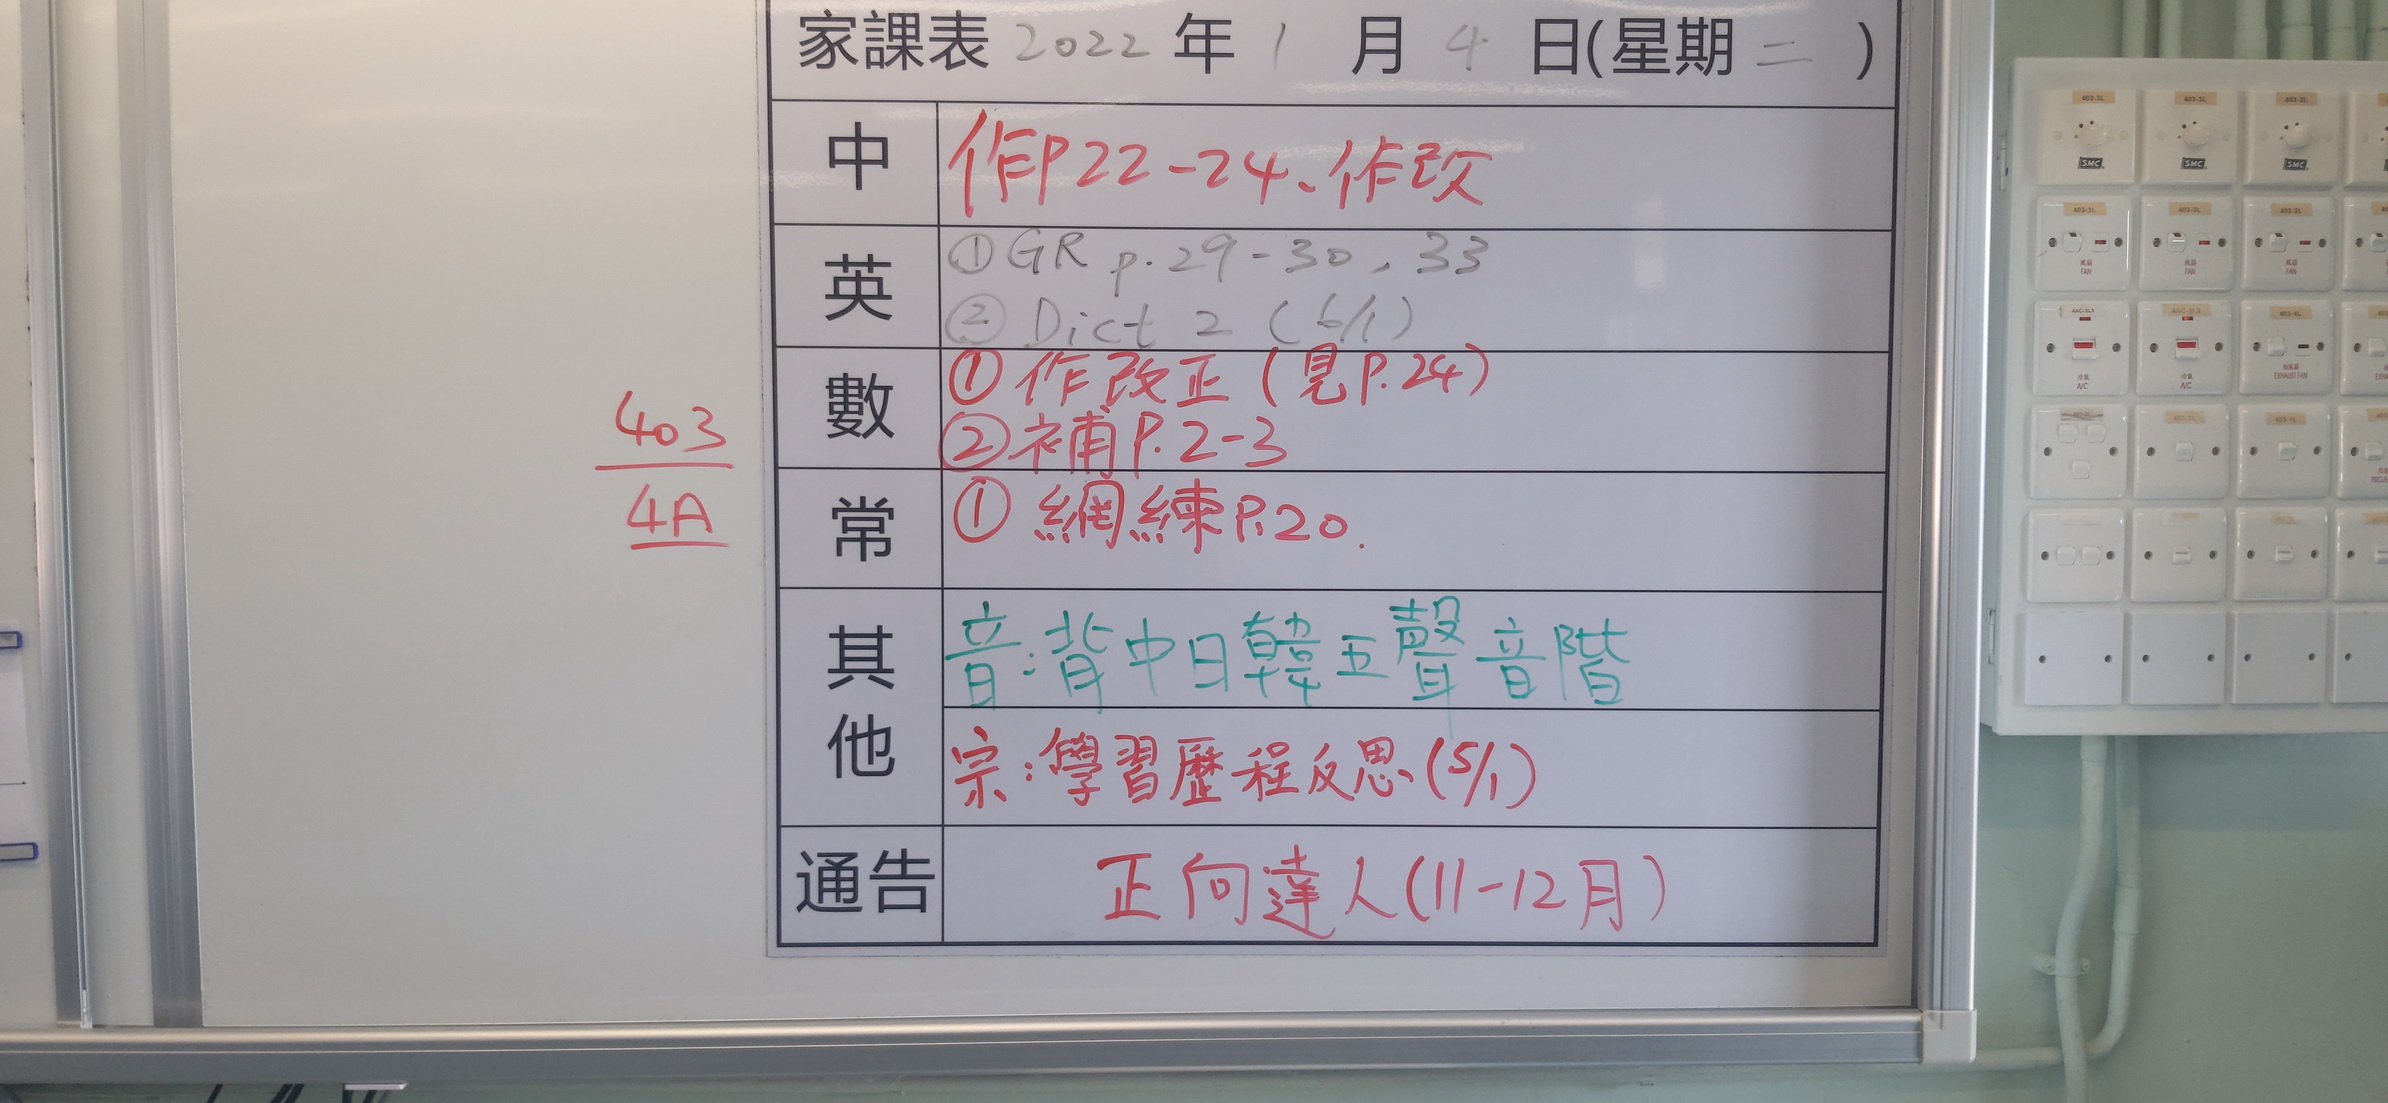 家課表 2022 年 1 月 4 日(星期二)
中 作P22-24、作改
英 ①GR p.29-30, 33
②Dict 2 (6/1)
數 ①作改正(見P.24)
②補P.2-3
常 ①網練P.20.
其他 音:背中日韓五聲音階
宗:學習歷程反思(5/1)
通告 正向達人(11-12月)
403
4A
403-3L 403-3L 403-3L
SMC SMC SMC
403-3L 403-3L 403-3L
風扇 風扇 風扇
FAN FAN FAN
冷氣 冷氣
A/C A/C EXHAUST FAN